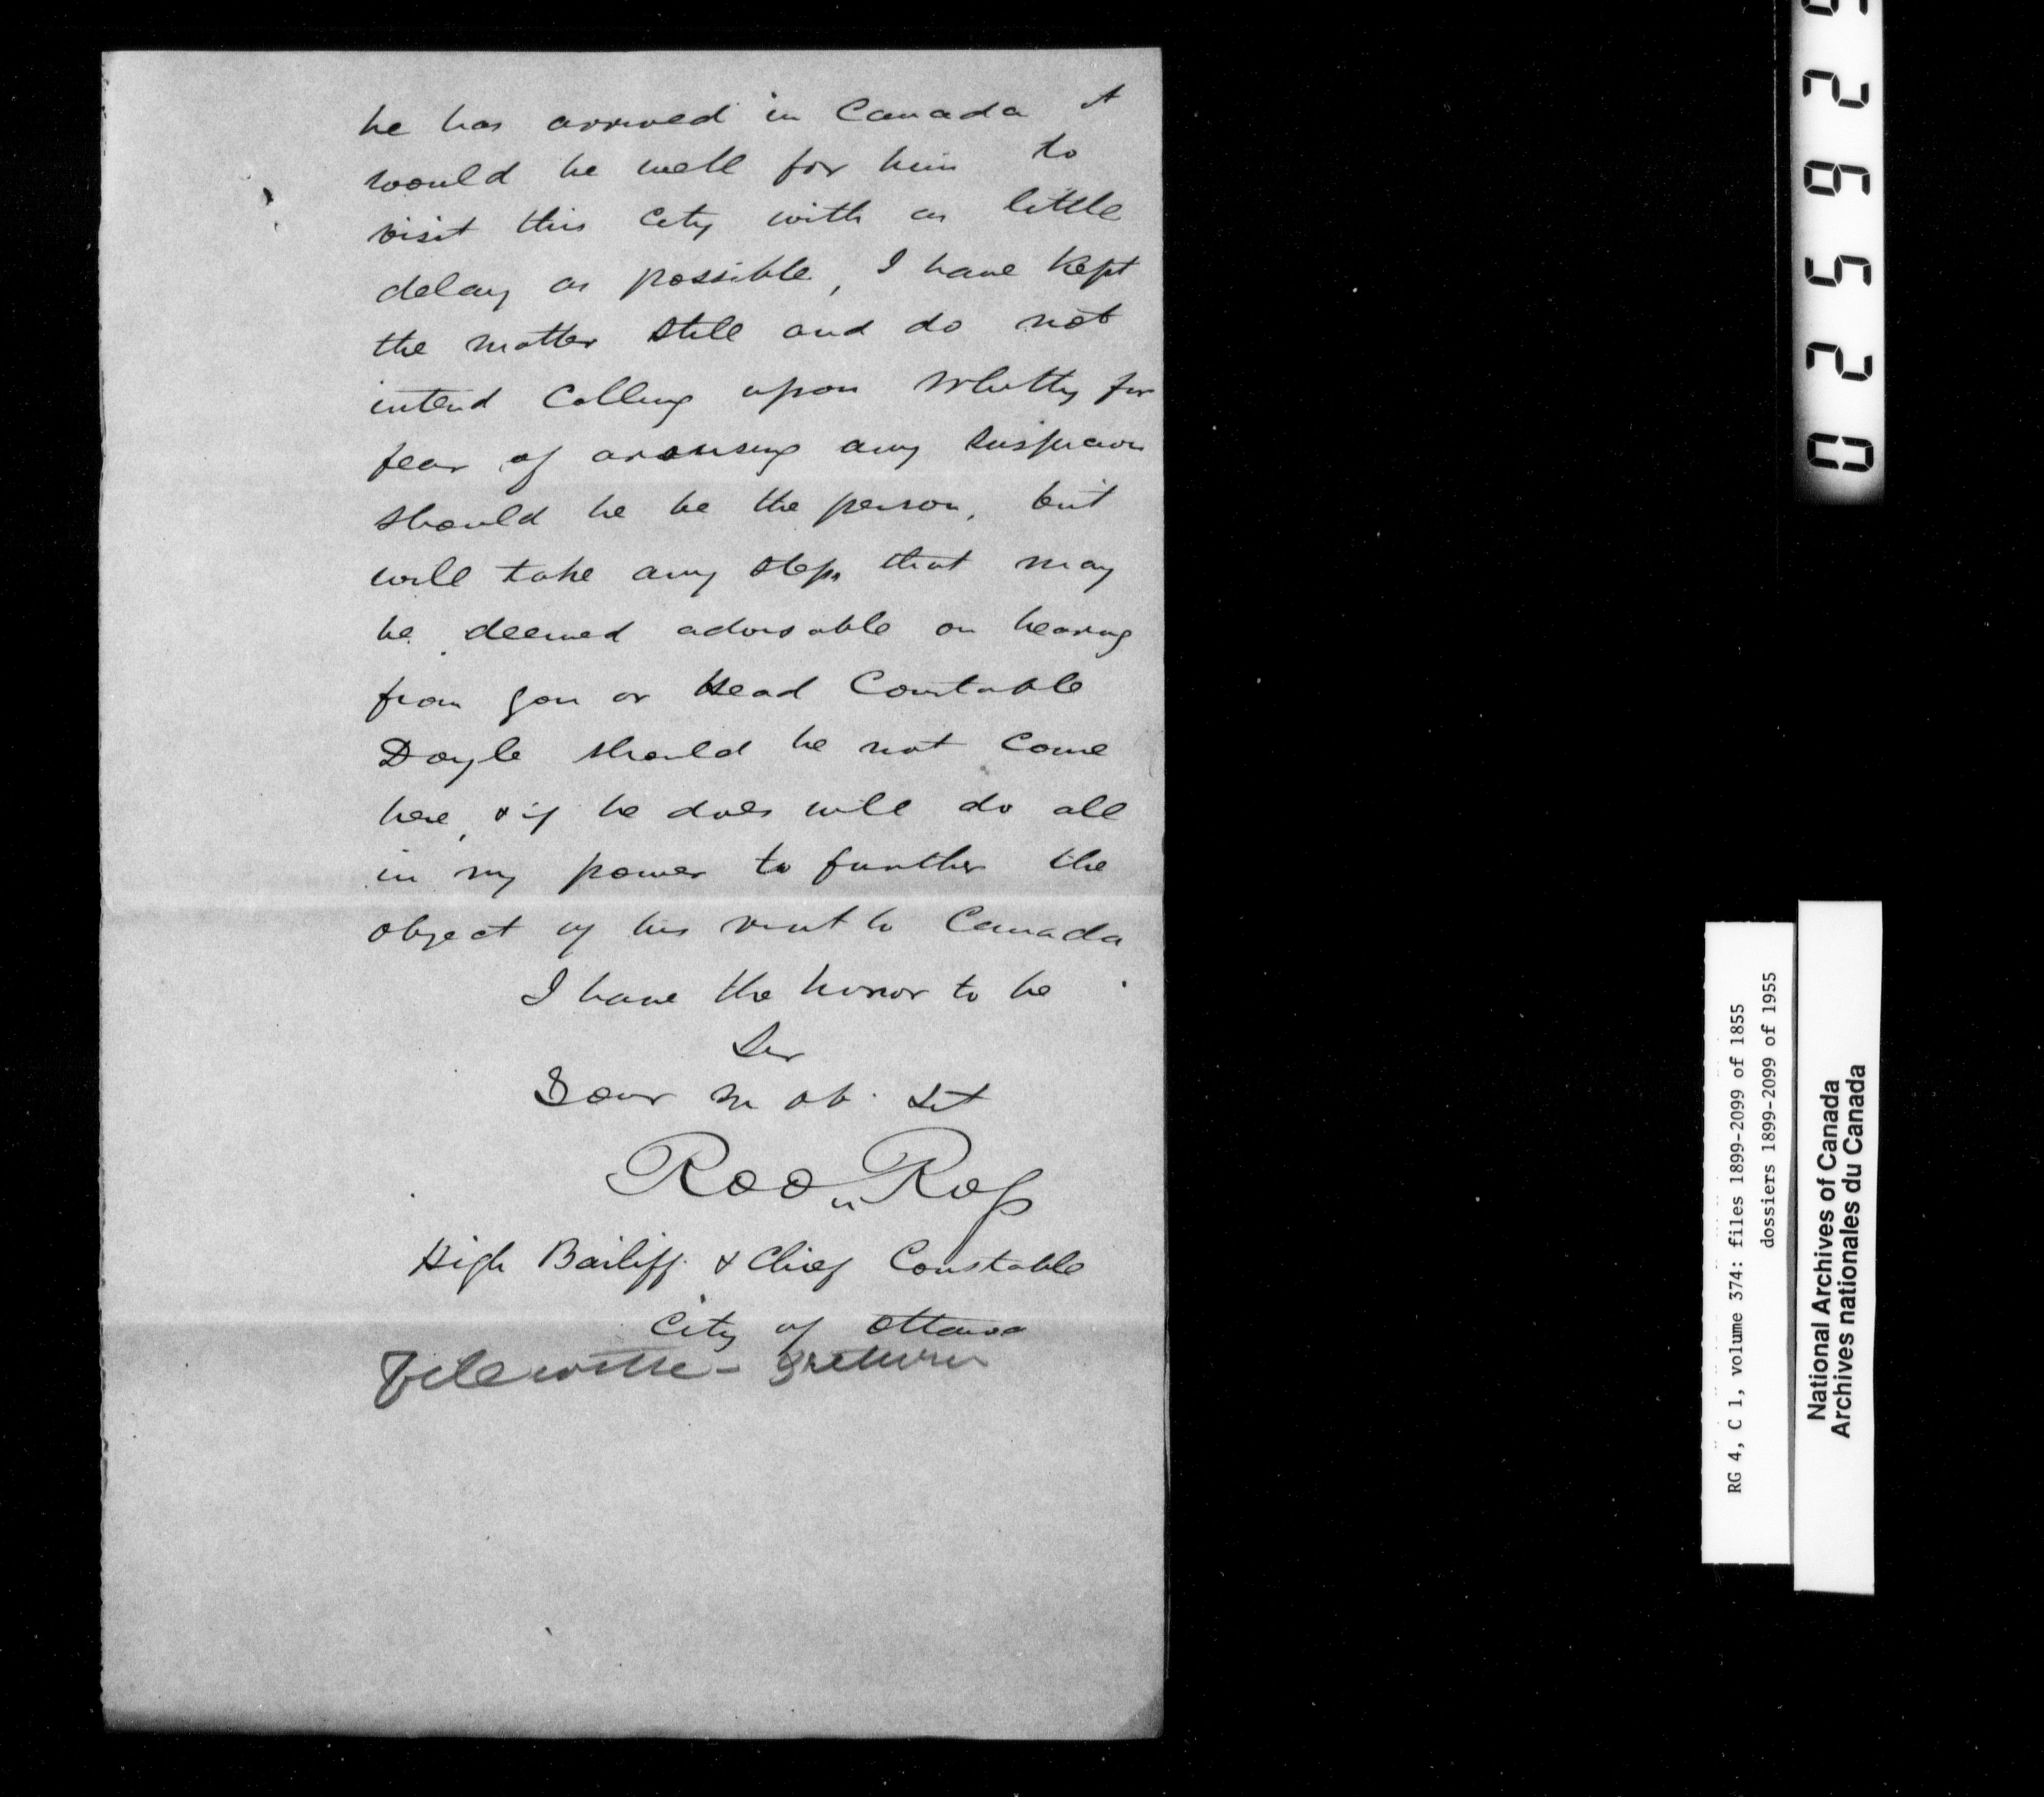 he has arrived in Canada it
would be well for him to
visit this City with as little
delay as possible, I have Kept
the matter still and do not
intend Calling upon Whitty for
fear of arousing any suspicion
should he be the person, but
will take any steps that may
be deemed advisable on hearing
from you or Head Constable
Doyle should he not Come
here, & if he does will do all
in my power to further the
object of his visit to Canada
I have the honor to be
Sir
Your m ob. Svt
Ross
High Bailiff & Chief Constable
City of Ottawa
File with
025929
RG 4, C 1, volume 374: files 1899-2099 of 1855
dossiers 1899-2099 of 1955
National Archives of Canada
Archives nationales du Canada